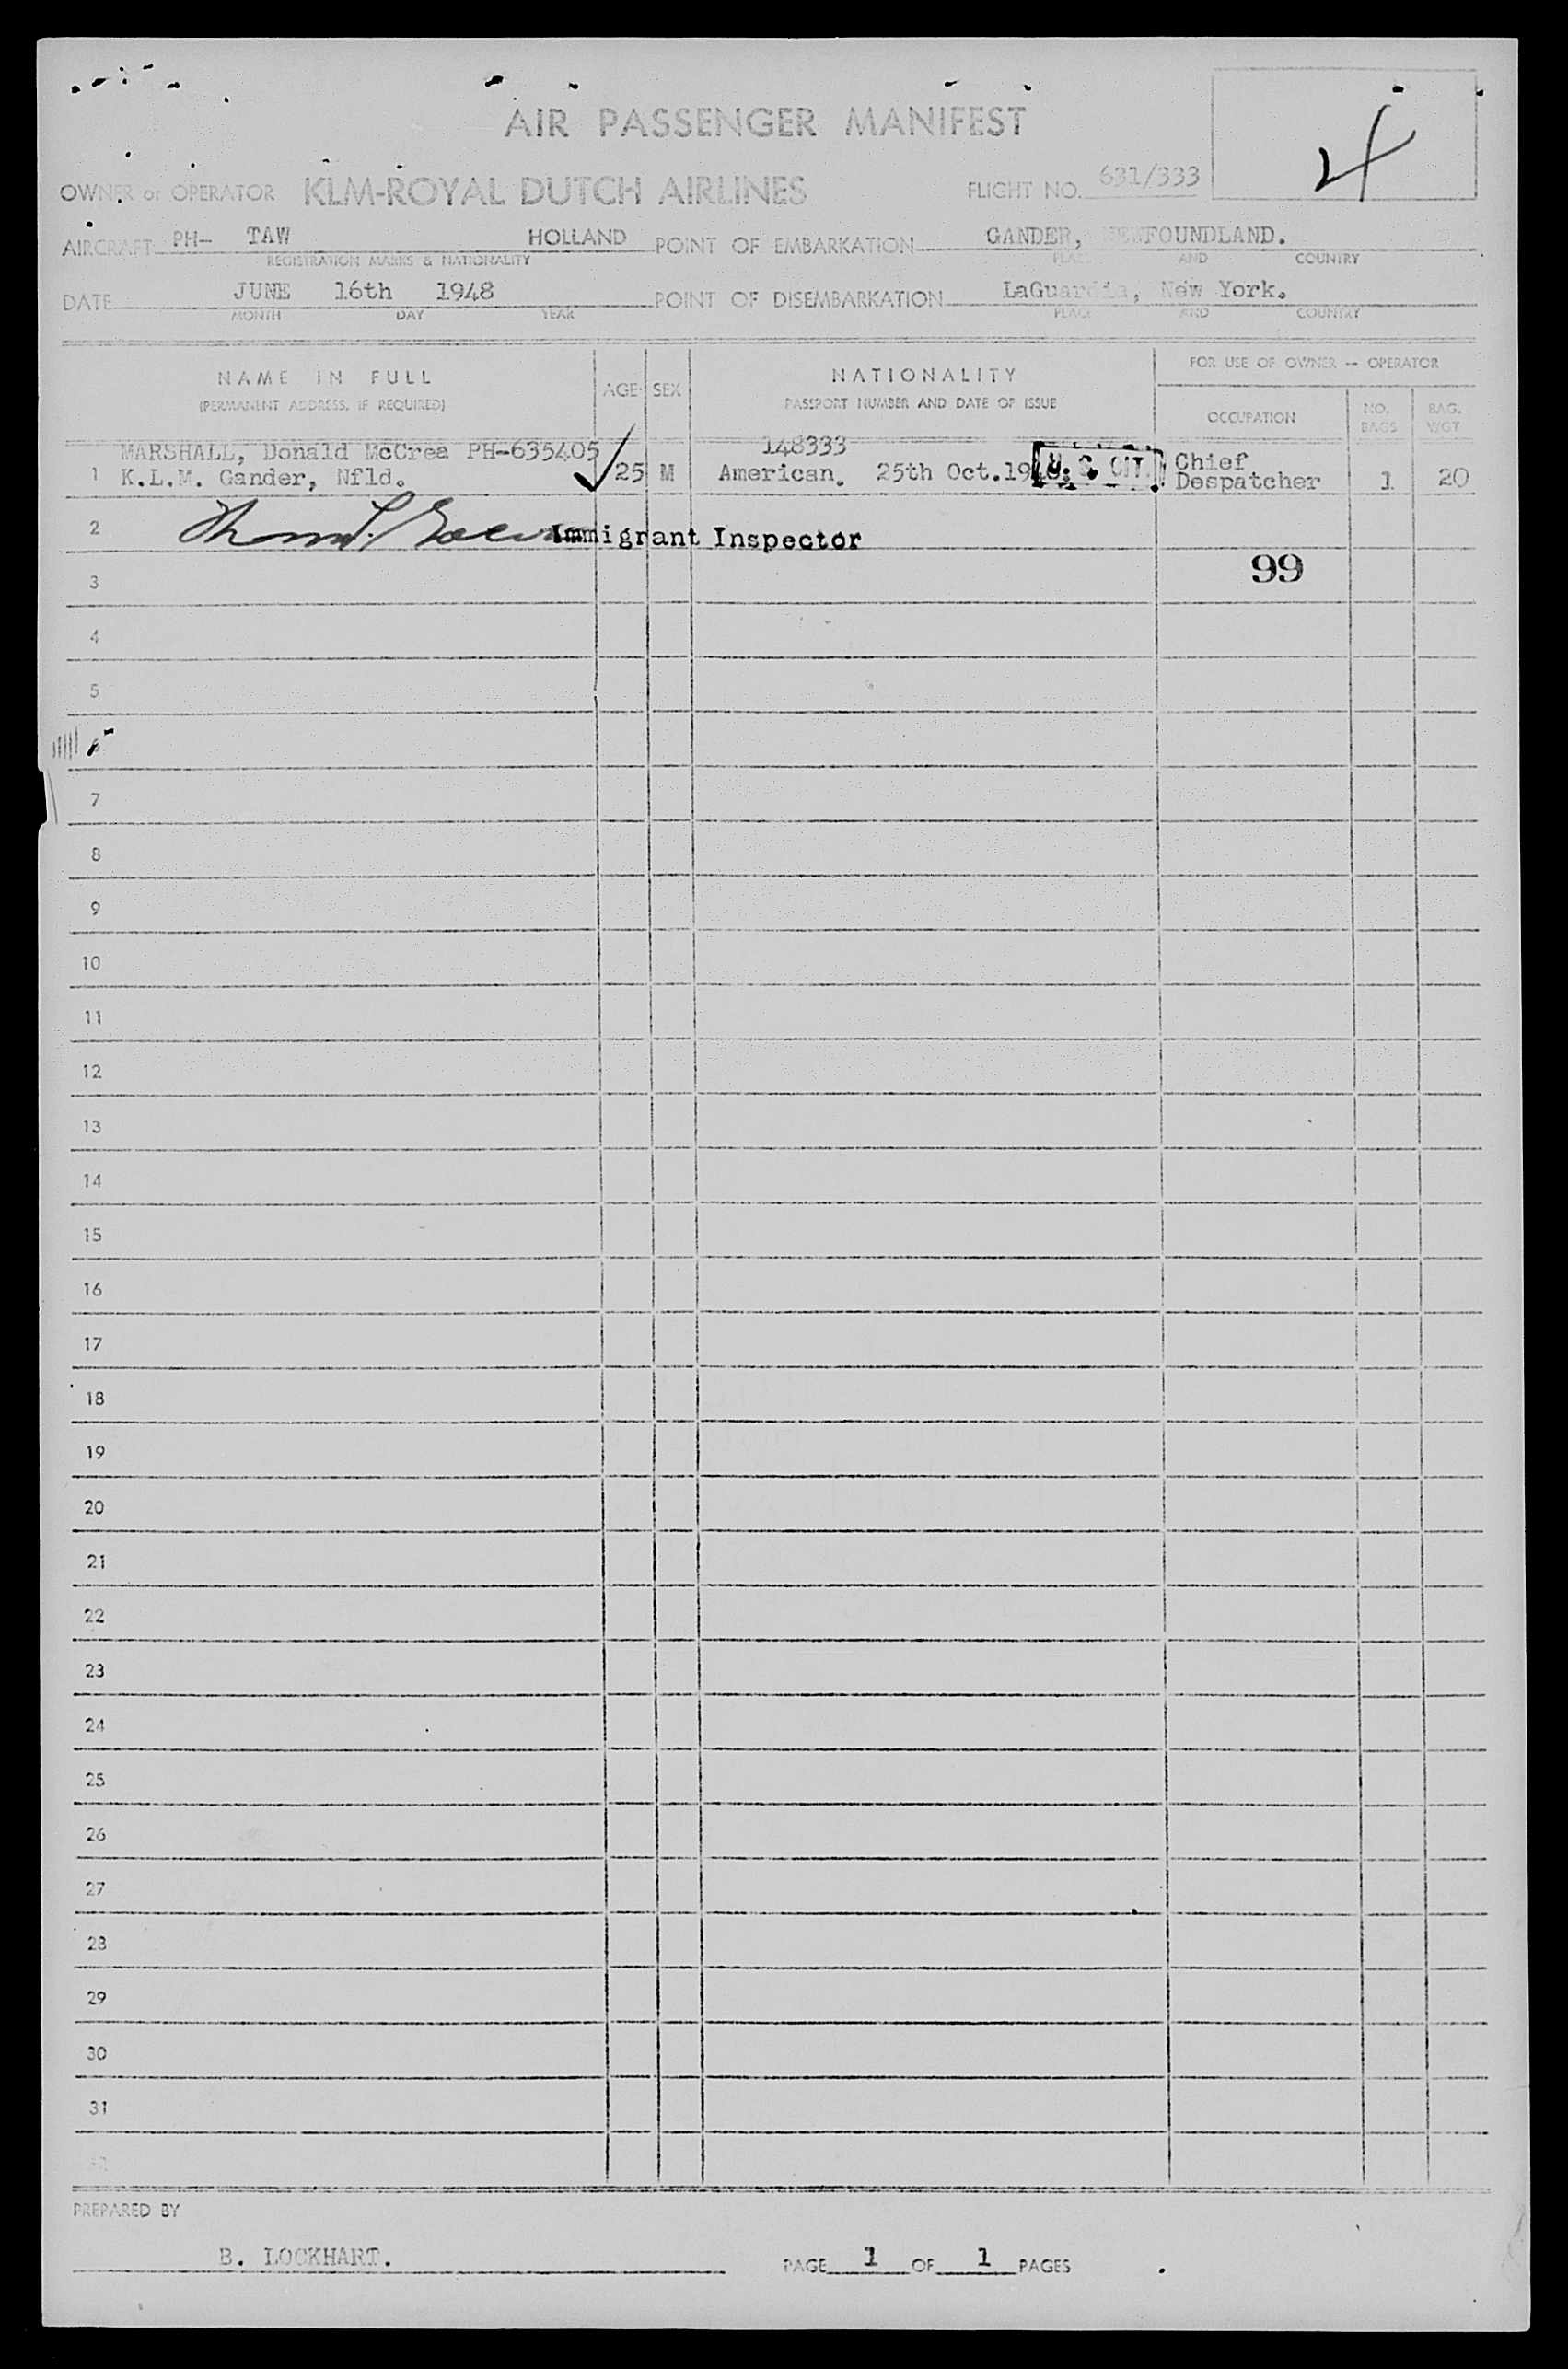 AIR PASSENGER MANIFEST
4
OWNER or OPERATOR KLM-ROYAL DUTCH AIRLINES FLIGHT NO. 631/333
AIRCRAFT PH- TAW HOLLAND POINT OF EMBARKATION GANDER, NEWFOUNDLAND.
REGISTRATION MARKS & NATIONALITY PLACE AND COUNTRY
DATE JUNE 16th 1948 POINT OF DISEMBARKATION LaGuardia, New York.
MONTH DAY YEAR PLACE AND COUNTRY
NAME IN FULL AGE SEX NATIONALITY FOR USE OF OWNER -- OPERATOR
(PERMANENT ADDRESS, IF REQUIRED) PASSPORT NUMBER AND DATE OF ISSUE OCCUPATION NO. BAGS BAG. WGT
MARSHALL, Donald McCrea PH-635405 148333 Chief
1 K.L.M. Gander, Nfld. 25 M American. 25th Oct. U. S. CIT. Despatcher 1 20
2 Immigrant Inspector
3 99
4
5
6
7
8
9
10
11
12
13
14
15
16
17
18
19
20
21
22
23
24
25
26
27
28
29
30
31
PREPARED BY
B. LOCKHART. PAGE 1 OF 1 PAGES